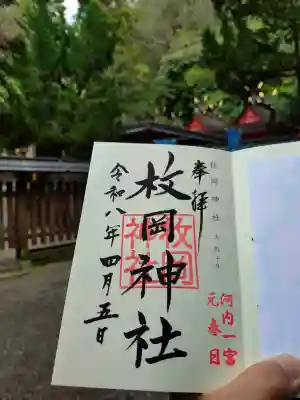 奉拝
枚岡神社
枚岡神社
令和八年四月五日
枚岡神社
河内一宮
元春日